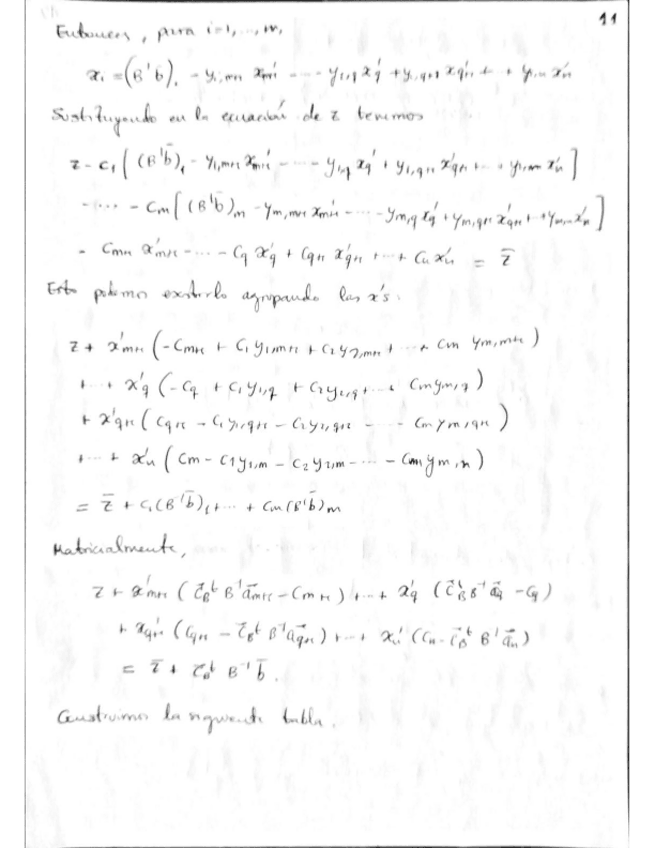 11
Entonces, para i=1,...,m,
x_i = (B^{-1} b̄)_i - y_{i,m+1} x'_{m+1} - ... - y_{i,q} x'_q + y_{i,q+1} x'_{q+1} + ... + y_{i,n} x'_n
Sustituyendo en la ecuación de z tenemos
z - c_1 [ (B^{-1} b̄)_1 - y_{1,m+1} x'_{m+1} - ... - y_{1,q} x'_q + y_{1,q+1} x'_{q+1} + ... + y_{1,n} x'_n ]
- ... - c_m [ (B^{-1} b̄)_m - y_{m,m+1} x'_{m+1} - ... - y_{m,q} x'_q + y_{m,q+1} x'_{q+1} + ... + y_{m,n} x'_n ]
- c_{m+1} x'_{m+1} - ... - c_q x'_q + c_{q+1} x'_{q+1} + ... + c_n x'_n = z̄
Esto podemos escribirlo agrupando las x's.
z + x'_{m+1} (-c_{m+1} + c_1 y_{1,m+1} + c_2 y_{2,m+1} + ... + c_m y_{m,m+1})
+ ... + x'_q (-c_q + c_1 y_{1,q} + c_2 y_{2,q} + ... + c_m y_{m,q})
+ x'_{q+1} (c_{q+1} - c_1 y_{1,q+1} - c_2 y_{2,q+1} - ... - c_m y_{m,q+1})
+ ... + x'_n (c_n - c_1 y_{1,n} - c_2 y_{2,n} - ... - c_m y_{m,n})
= z̄ + c_1 (B^{-1} b̄)_1 + ... + c_m (B^{-1} b̄)_m
Matricialmente,
z + x'_{m+1} (c̄_B^t B^{-1} ā_{m+1} - c_{m+1}) + ... + x'_q (c̄_B^t B^{-1} ā_q - c_q)
+ x'_{q+1} (c_{q+1} - c̄_B^t B^{-1} ā_{q+1}) + ... + x'_n (c_n - c̄_B^t B^{-1} ā_n)
= z̄ + c̄_B^t B^{-1} b̄.
Construimos la siguiente tabla.